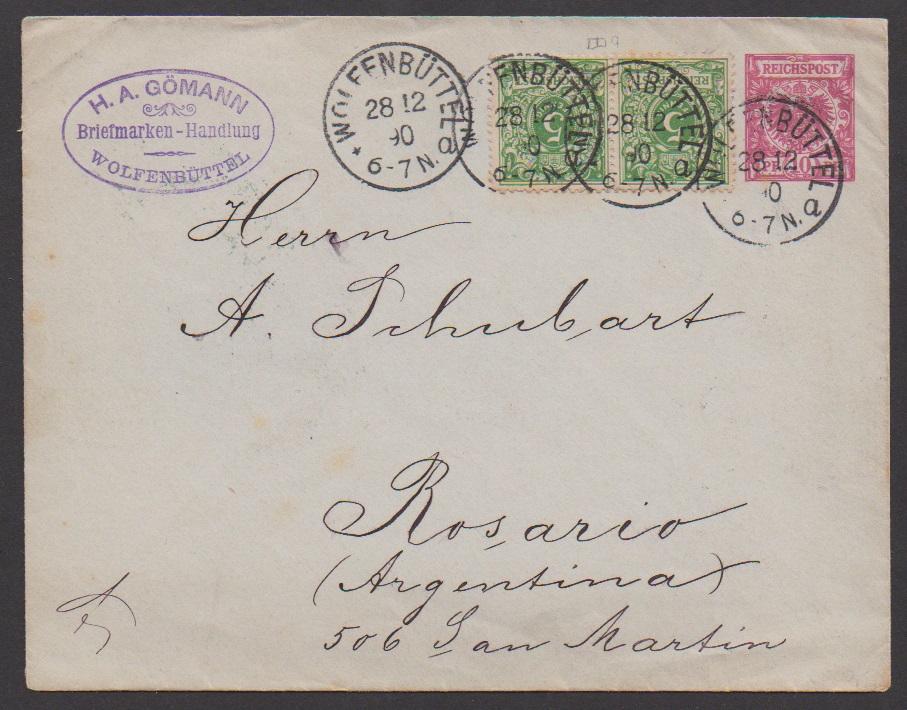 H. A. GÖMANN
Briefmarken-Handlung
WOLFENBÜTTEL
WOLFENBÜTTEL
28 12
90
6-7 N.
a
ENBÜTTEL
28 12
6-7 N
5
ENBÜTTEL
28 12
90
6-7 N
a
5
REICHSPOST
BÜTTEL
28 12
6-7 N.
a
Herrn
A. Schubart
Rosario
(Argentina)
506 San Martin